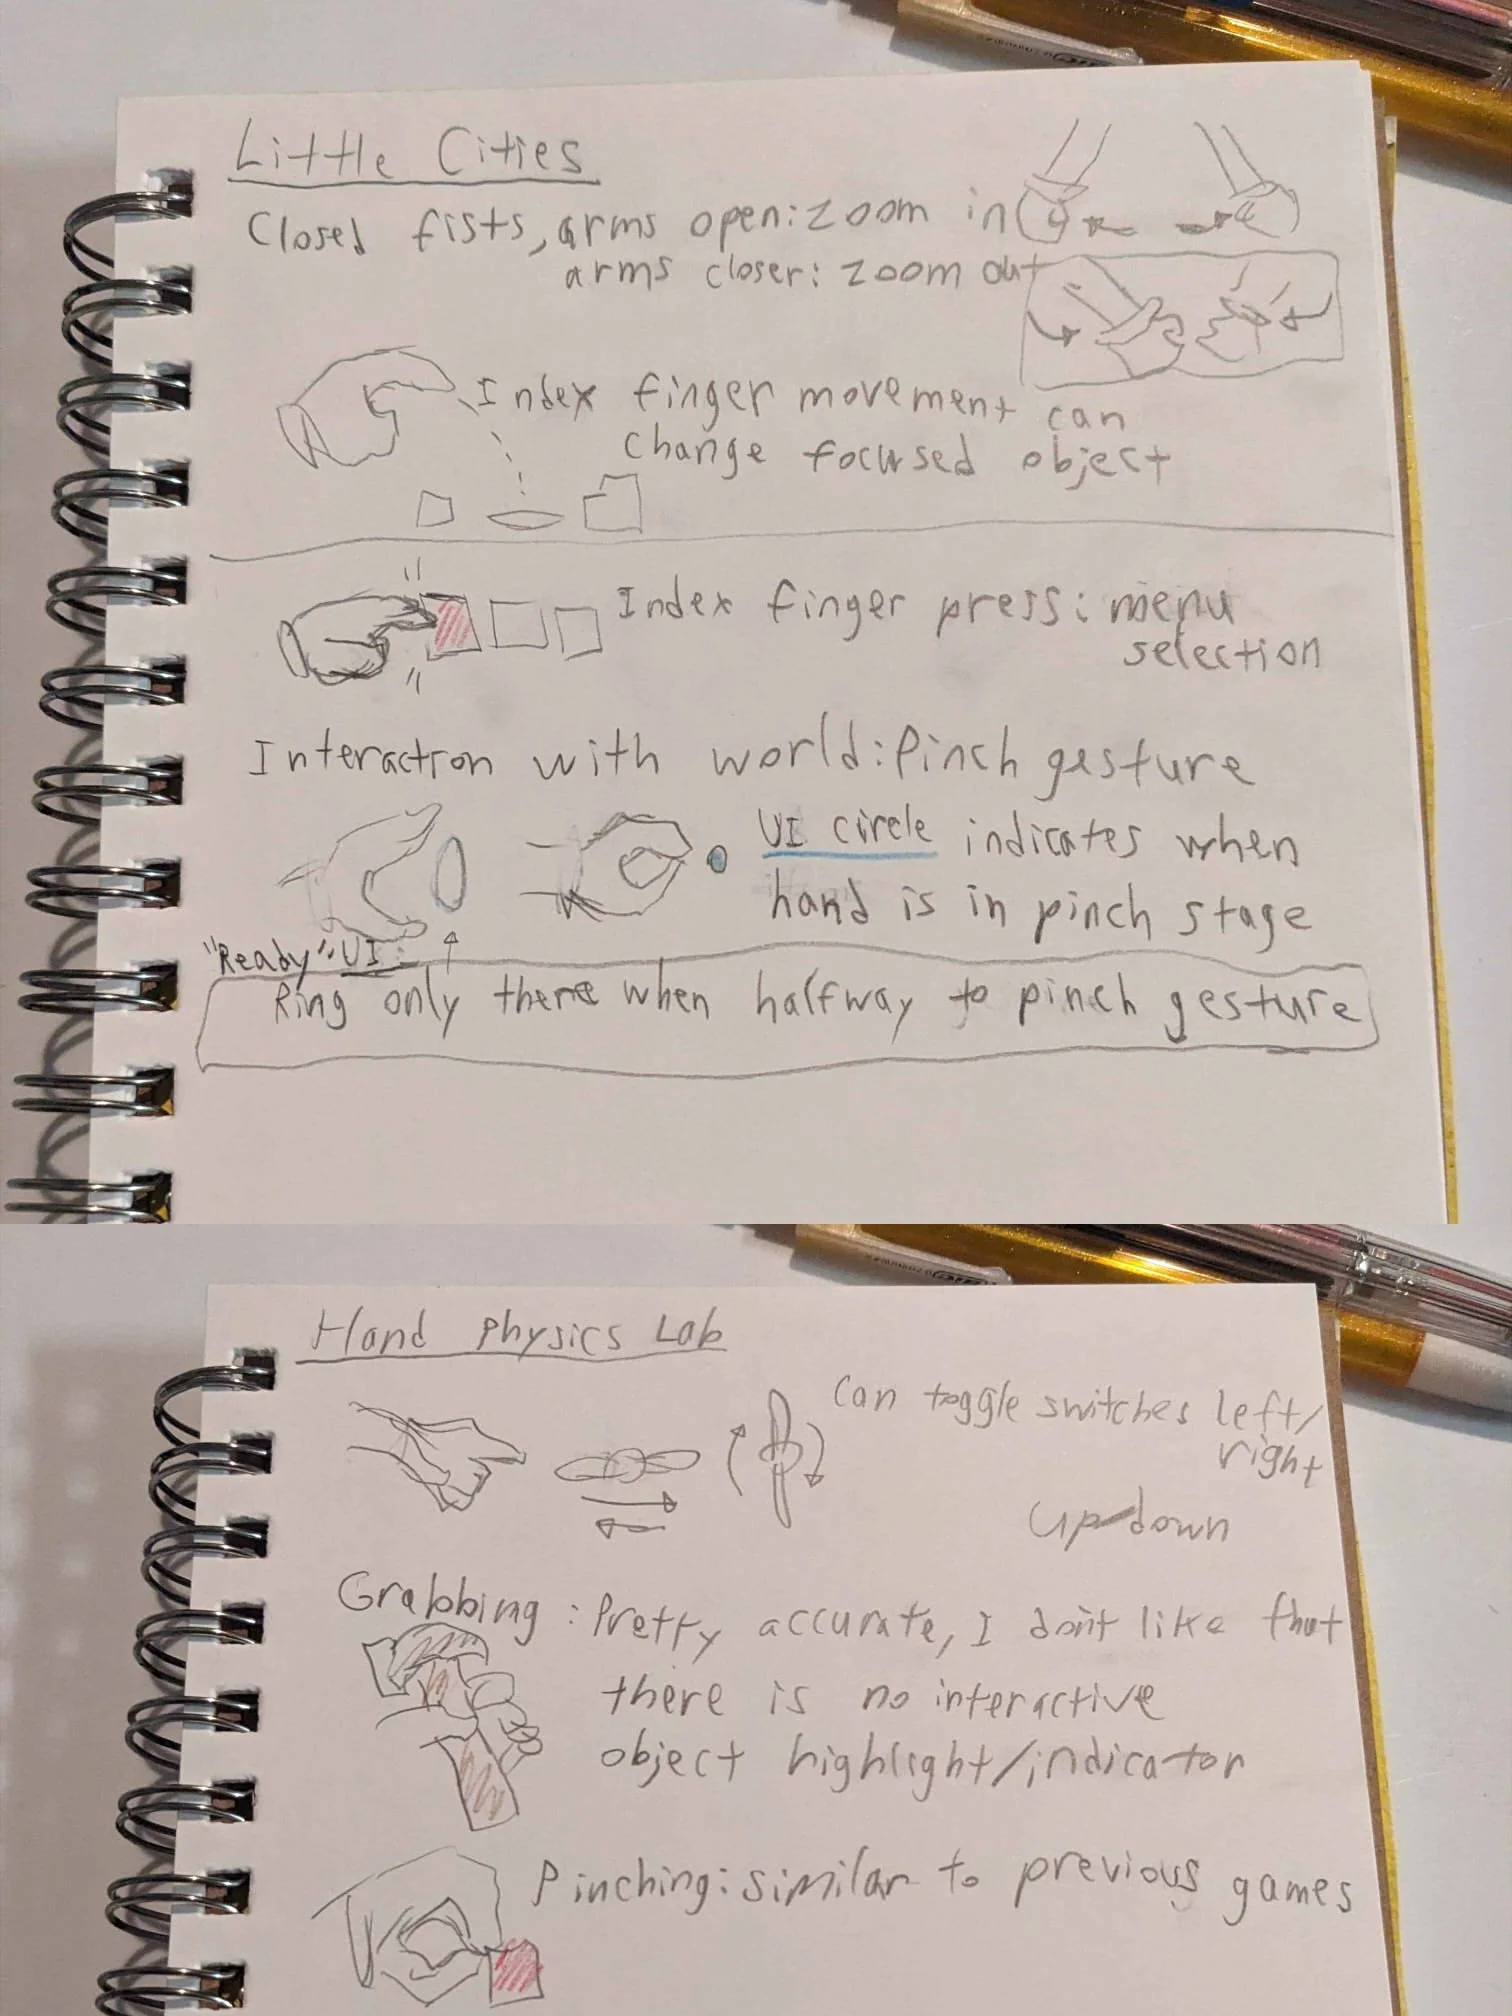 Little Cities
Closed fists, arms open: zoom in
arms closer: zoom out
Index finger movement can
change focused object
Index finger press: menu
selection
Interaction with world: Pinch gesture
UI circle indicates when
hand is in pinch stage
"Ready" UI:
Ring only there when halfway to pinch gesture
Hand Physics Lab
Can toggle switches left/
right
up/down
Grabbing: Pretty accurate, I don't like that
there is no interactive
object highlight/indicator
Pinching: similar to previous games